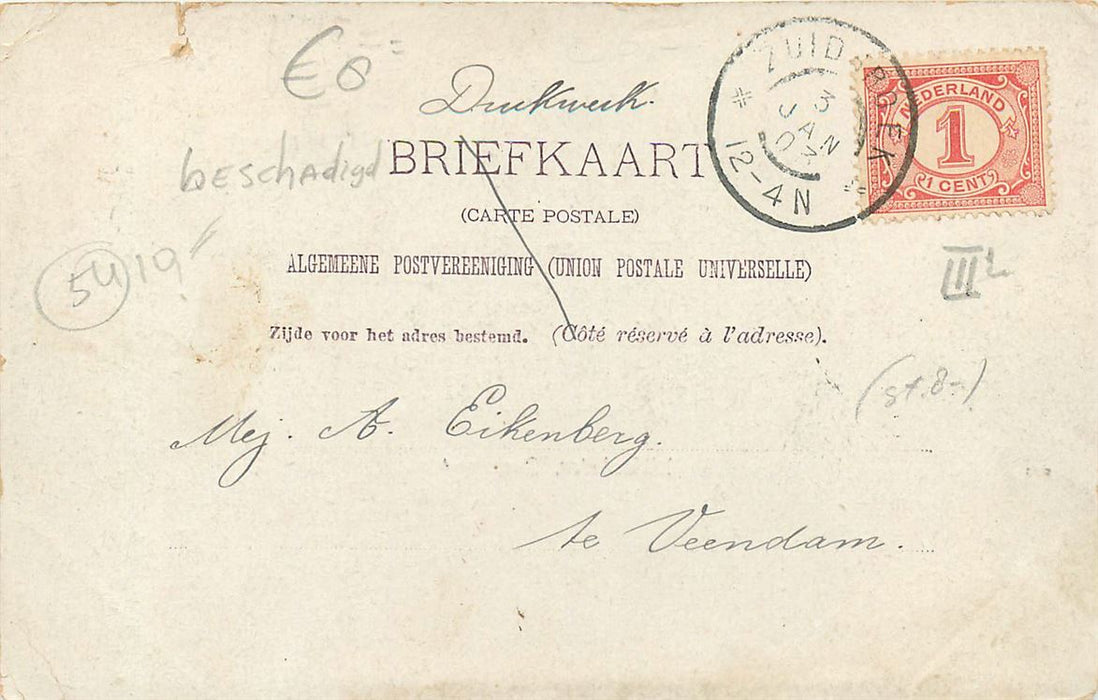 €6-=
Drukwerk.
beschadigd
BRIEFKAART
(CARTE POSTALE)
ALGEMEENE POSTVEREENIGING (UNION POSTALE UNIVERSELLE)
Zijde voor het adres bestemd. (Côté réservé à l'adresse).
ZUIDBROEK
3
JAN
03
12-4N
NEDERLAND
1
1 CENT
5419"
III
(st.8-)
Mej. A. Eikenberg.
te Veendam.